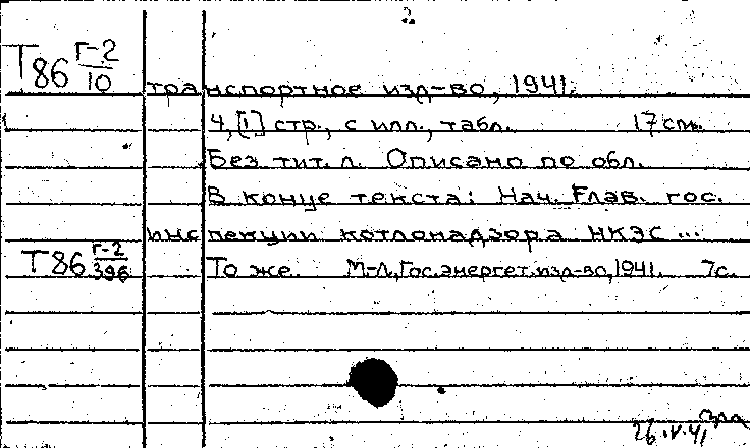 2
Т86 Г-2/10
транспортное изд-во, 1941.
4, [1] стр., с илл., табл. 17 см.
Без тит. л. Описано по обл.
В конце текста: Нач. Глав. гос.
инспекции котлонадзора НКЭС ...
Т86 Г-2/396 То же. М-Л, Гос. энергет. изд-во, 1941. 7с.
26.IV.41